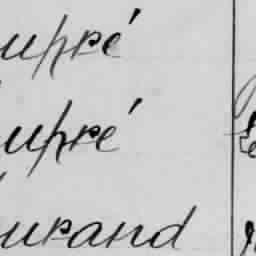 upré
upré
urand